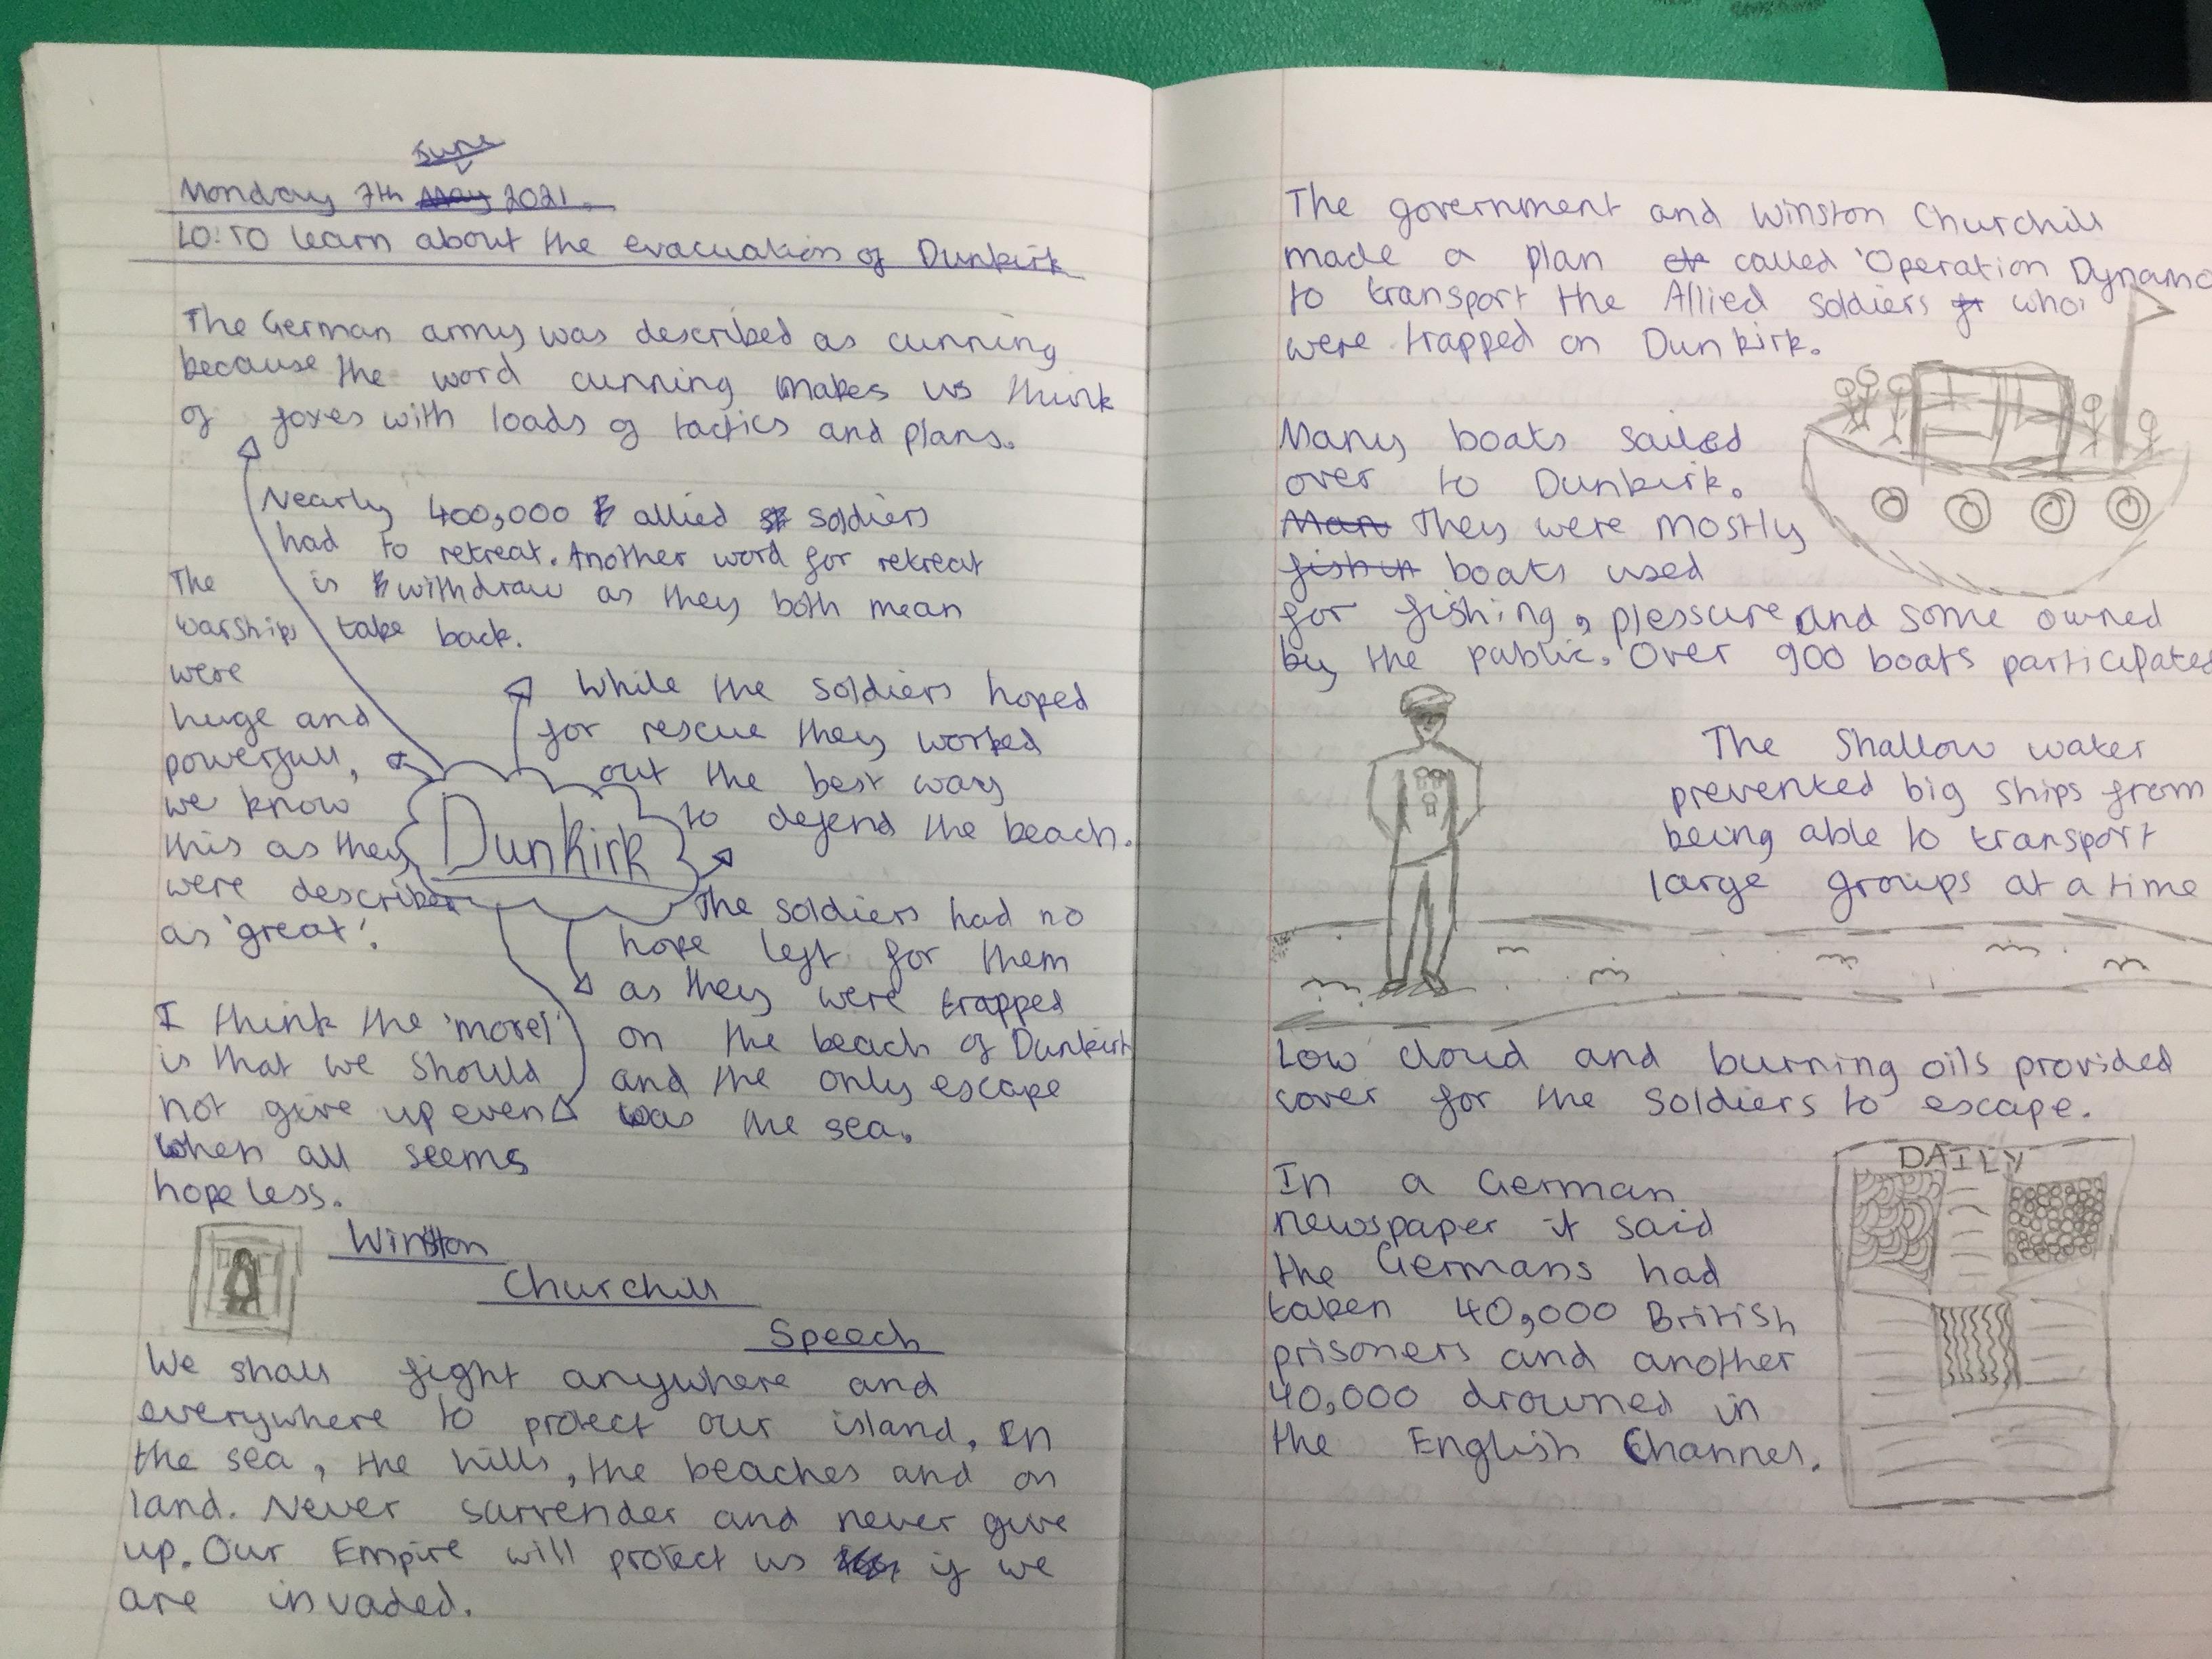 June
Monday 7th May 2021.
LO: TO learn about the evacuation of Dunkirk
The German army was described as cunning
because the word cunning makes us think
of foxes with loads of tactics and plans.
Nearly 400,000 allied soldiers
had to retreat. Another word for retreat
is withdraw as they both mean
take back.
The
warships
were
huge and
powerfull,
we know
this as they
were described
as 'great'.
While the soldiers hoped
for rescue they worked
out the best way
to defend the beach.
Dunkirk
The soldiers had no
hope left for them
as they were trapped
on the beach of Dunkirk
and the only escape
was the sea.
I think the 'morel'
is that we should
not give up even
when all seems
hopeless.
Winston
Churchill
Speech
We shall fight anywhere and
everywhere to protect our island. In
the sea, the hills, the beaches and on
land. Never surrender and never give
up. Our Empire will protect us if we
are invaded.
The government and Winston Churchill
made a plan called 'Operation Dynamo
to transport the Allied soldiers who
were trapped on Dunkirk.
Many boats sailed
over to Dunkirk.
Man They were mostly
fishin boats used
for fishing, plessure and some owned
by the public. Over 900 boats participated
The shallow water
prevented big ships from
being able to transport
large groups at a time
Low cloud and burning oils provided
cover for the soldiers to escape.
In a German
newspaper it said
the Germans had
taken 40,000 British
prisoners and another
40,000 drowned in
the English Channel.
DAILY